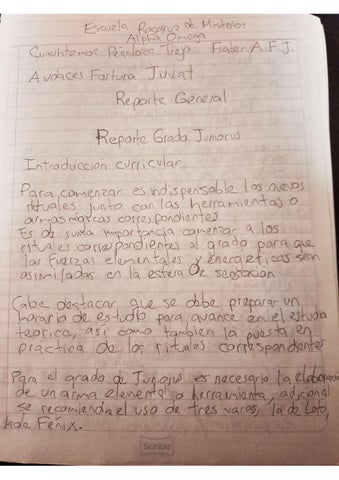 Escuela Rosacruz de Misterios
Alpha Omega
Cuauhtemoc Peñaloza Trejo Frater A.F.J.
Audaces Fortuna Juvat
Reporte General
Reporte Grado Juniorus
Introducción curricular
Para comenzar es indispensable los nuevos
rituales junto con las herramientas o
armas mágicas correspondientes
Es de suma importancia comenzar a los
rituales correspondientes al grado para que
las fuerzas elementales y energeticas sean
asimiladas en la esfera de sensación.
Cabe destacar que se debe preparar un
horario de estudio para avance en el estudio
teorico, así como tambien la puesta en
practica de los rituales correspondientes
Para el grado de Juniorus es necesario la elaboración
de un arma elemental o herramienta, adicional
se recomienda el uso de tres varas, la de Loto,
la de Fenix.
Scribe